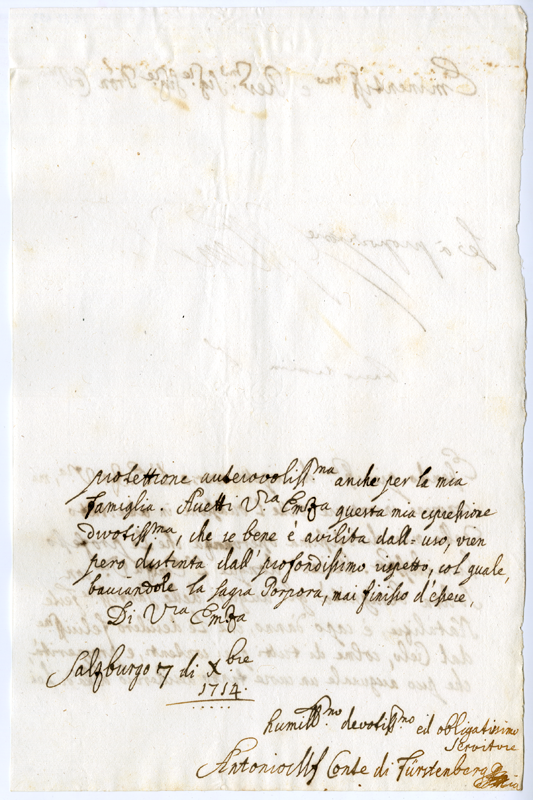 protettione autorovoliss.ma anche per la mia
famiglia. Accetti V.ra Emza questa mia espressione
divotiss.ma, che se bene è avilita dall' uso, vien
però distinta dall' profondissimo rispetto, col quale,
baciandole la sagra Porpora, mai finisco d'essere,
Di V.ra Emza
Salzburgo 7 di Xbre
1714.
humiliss.mo devotiss.mo ed obligatissimo
servitore
Conte di Fürstenberg